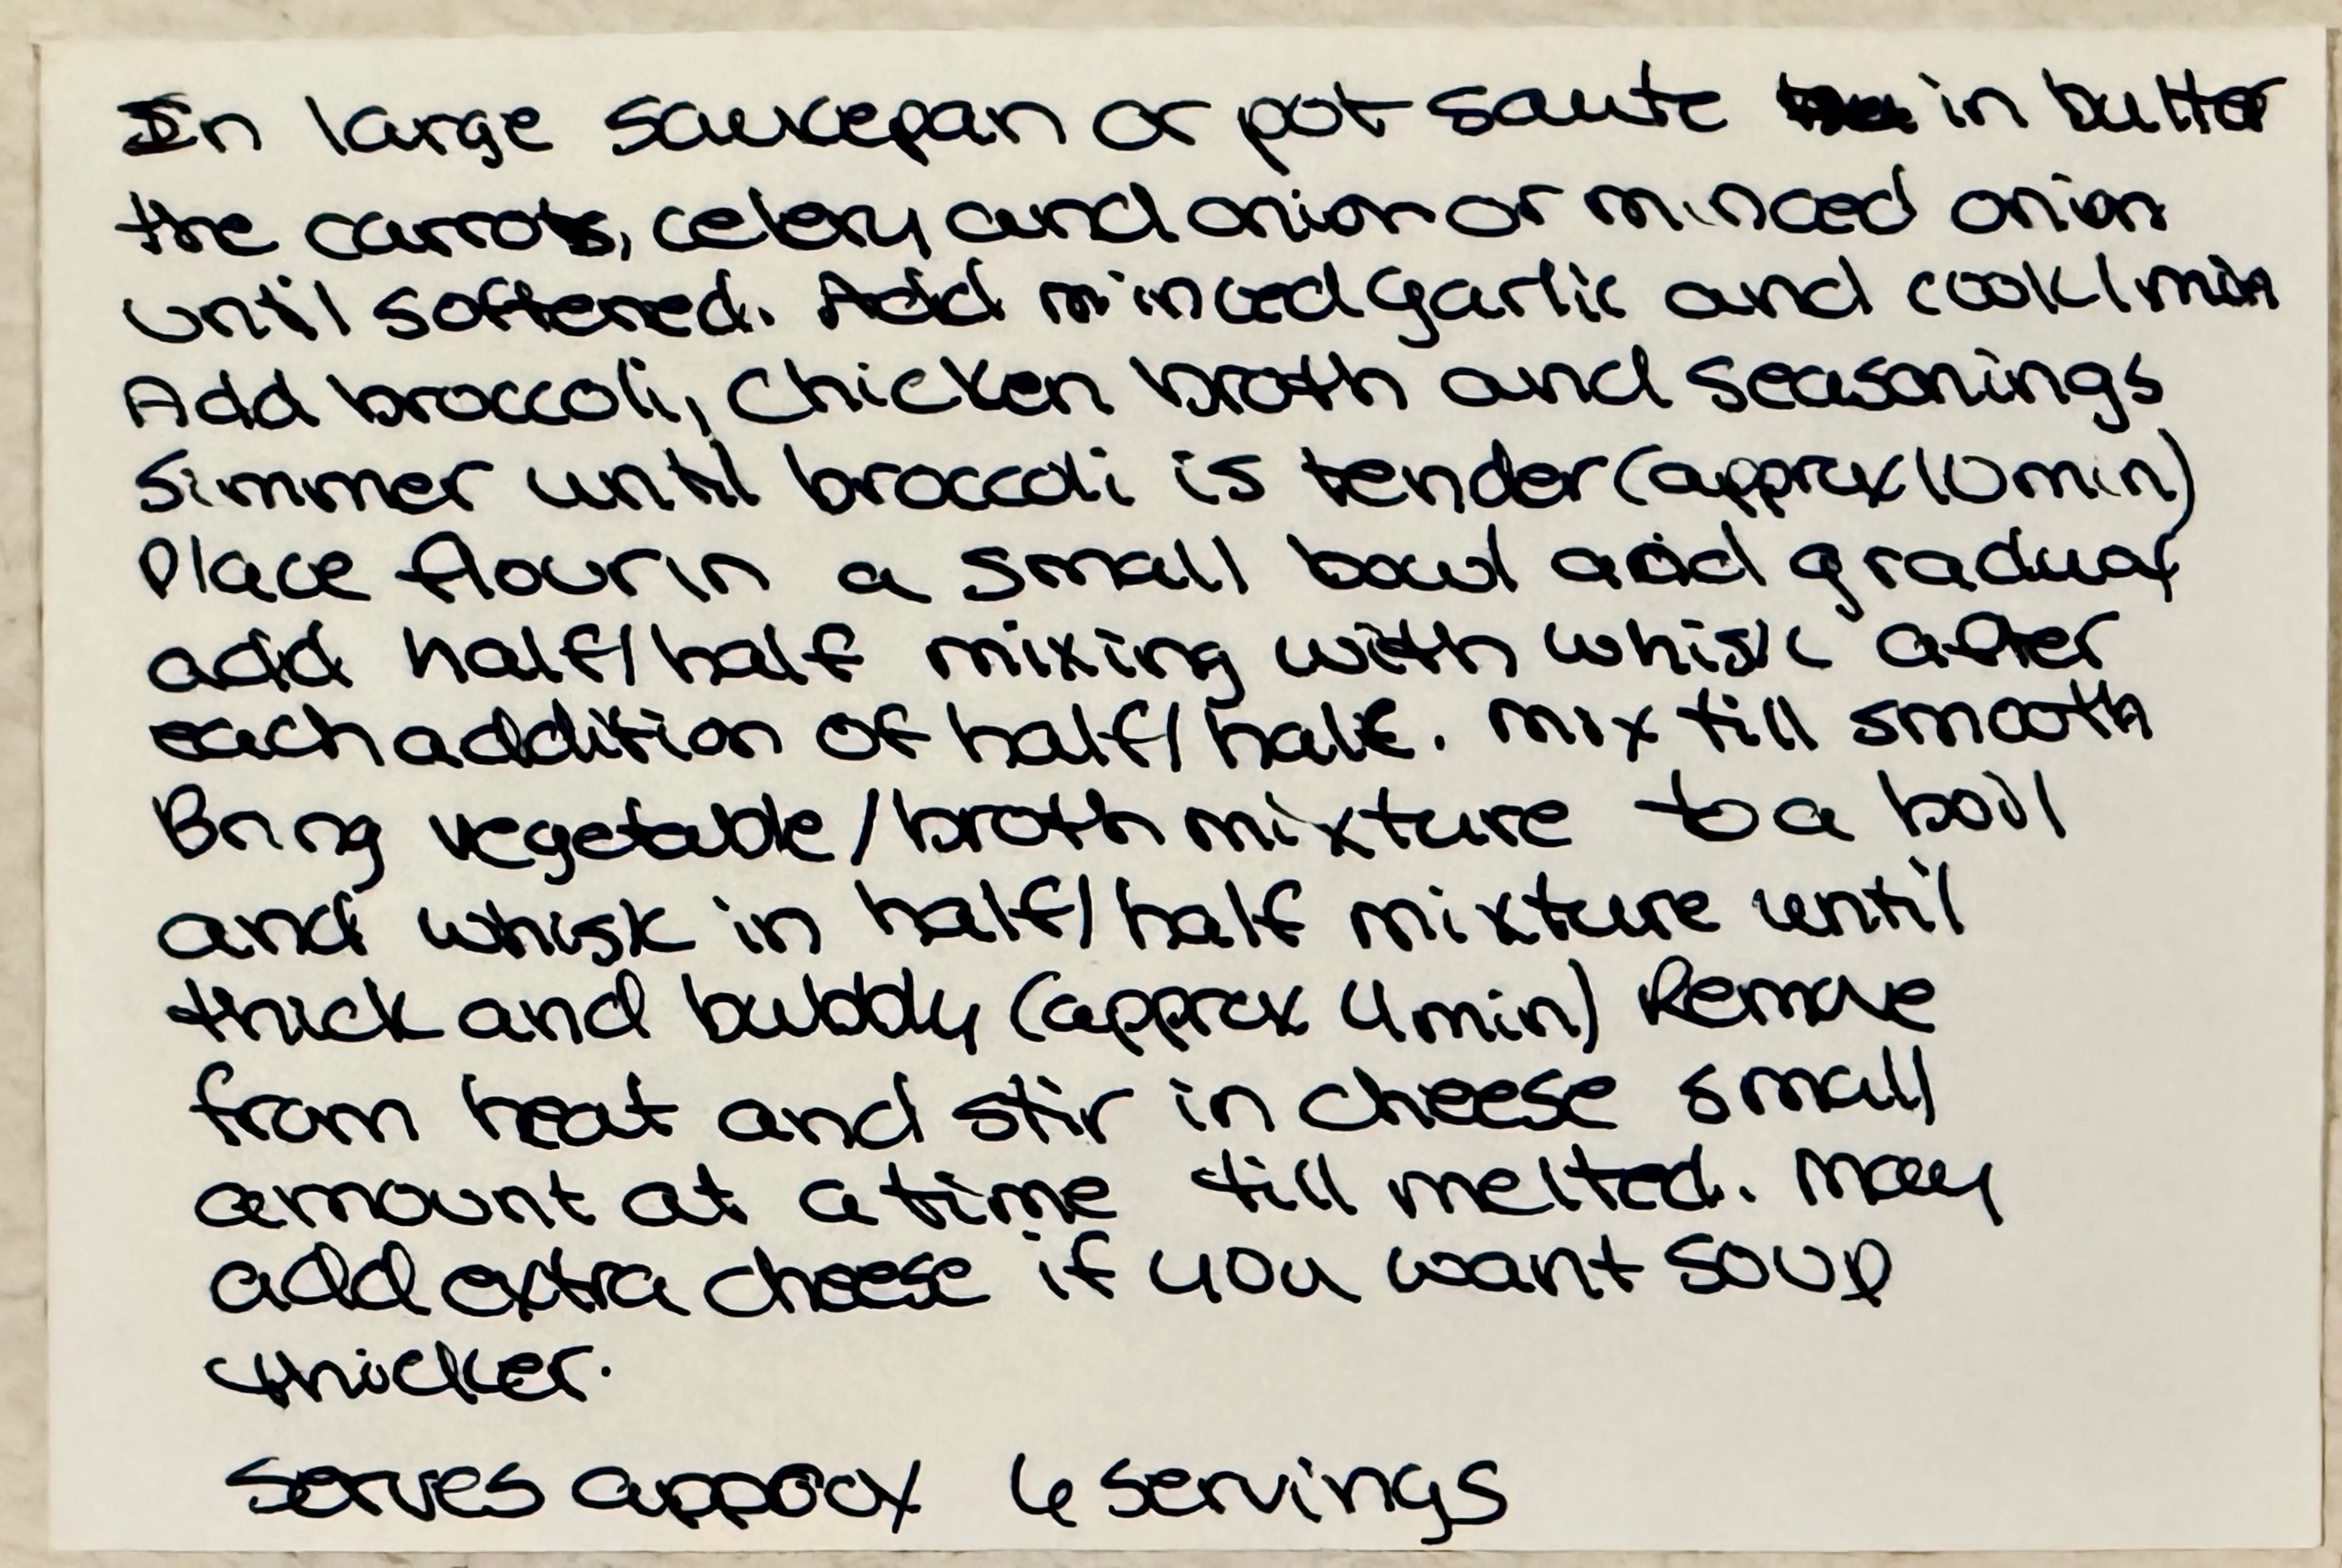 In large saucepan or pot saute in butter
the carrots, celery and onion or minced onion
until softened. Add minced garlic and cook 1 min
Add broccoli, Chicken broth and seasonings
Simmer until broccoli is tender (approx 10 min)
Place flour in a small bowl and gradual
add half/half mixing with whisk after
each addition of half/half. Mix till smooth
Bring vegetable/broth mixture to a boil
and whisk in half/half mixture until
thick and bubbly (approx 4 min) Remove
from heat and stir in cheese small
amount at a time till melted. May
add extra cheese if you want soup
thicker.
Serves approx 6 servings